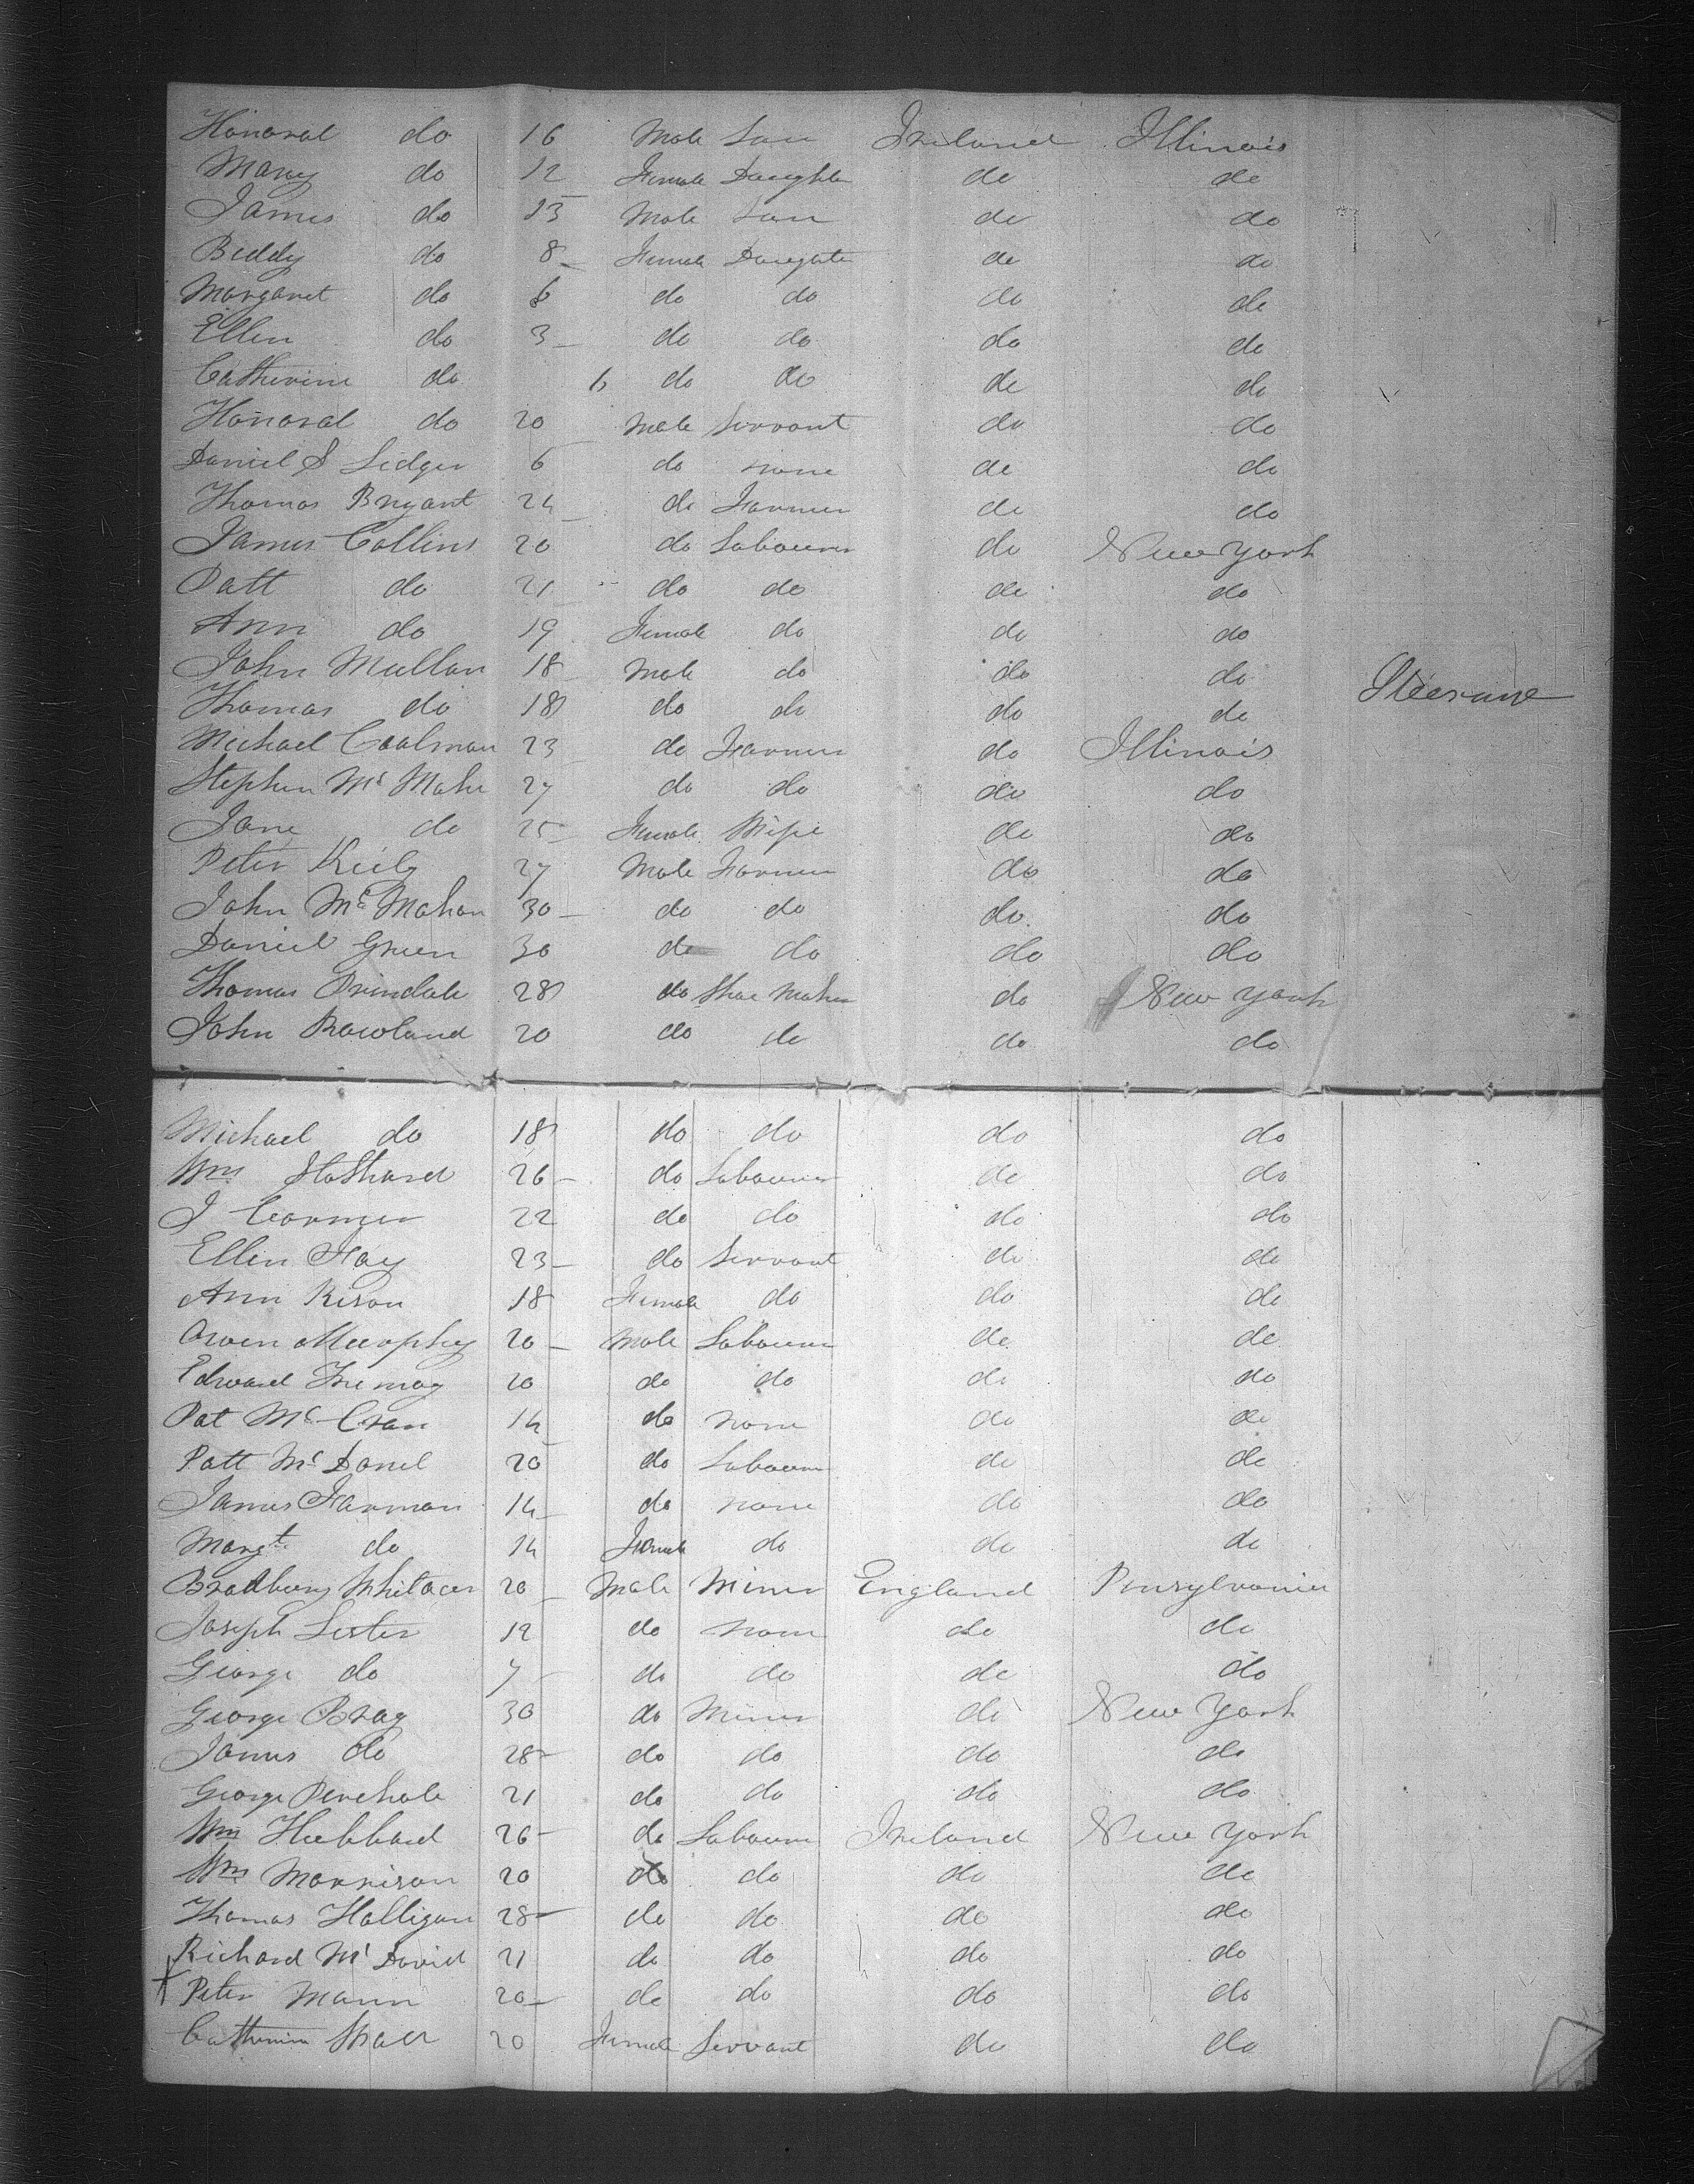 Honoral do 16 Male Son Ireland Illinois
Mary do 12 Female Daughter do do
James do 13 Male Son do do
Biddy do 8 Female Daughter do do
Margaret do 6 do do do do
Ellen do 3 do do do do
Catherine do 6 do do do do
Honoral do 20 Male Servant do do
Daniel S Lidger 6 do none do do
Thomas Bryant 24 do Farmer do do
James Collins 20 do Labourer do New York
Patt do 21 do do do do
Ann do 19 Female do do do
John Mullan 18 Male do do do
Steerane
Thomas do 18 do do do do
Michael Coalman 23 do Farmer do Illinois
Stephen Mc Mahr 27 do do do do
Jane do 25 Female Wife do do
Peter Keily 27 Male Farmer do do
John Mc Mahon 30 do do do do
Daniel Green 30 do do do do
Thomas Prindale 28 do Shoe Maker do New York
John Rowland 20 do do do do
Michael do 18 do do do do
Wm Stothard 26 do Labourer do do
J 22 do do do do
Ellen Fay 23 do Servant do do
Ann Rison 18 Female do do do
Owen Murphy 20 Male Labourer do do
Edward 20 do do do do
Pat Mc Cran 14 do none do do
Patt Mc Danel 20 do Labourer do do
James Farman 14 do none do do
Margt do 14 Female do do do
Bradbury Whitacer 20 Male Miner England Pensylvania
Joseph Lester 12 do none do do
George do 7 do do do do
George Bray 30 do Miner do New York
James do 28 do do do do
George Penehale 21 do do do do
Wm Hubbard 26 do Labourer Ireland New York
Wm Morrison 20 do do do do
Thomas Halligan 28 do do do do
Richard Mc David 21 do do do do
Peter Mann 20 do do do do
Catherine 20 Female Servant do do